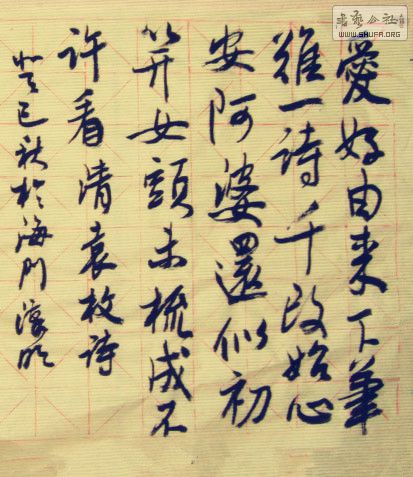 愛好由来下筆
難一詩千改始心
安阿婆還似初
笄女頭未梳成不
許看清袁枚詩
癸巳秋於海门
书艺公社
WWW.SHUFA.ORG